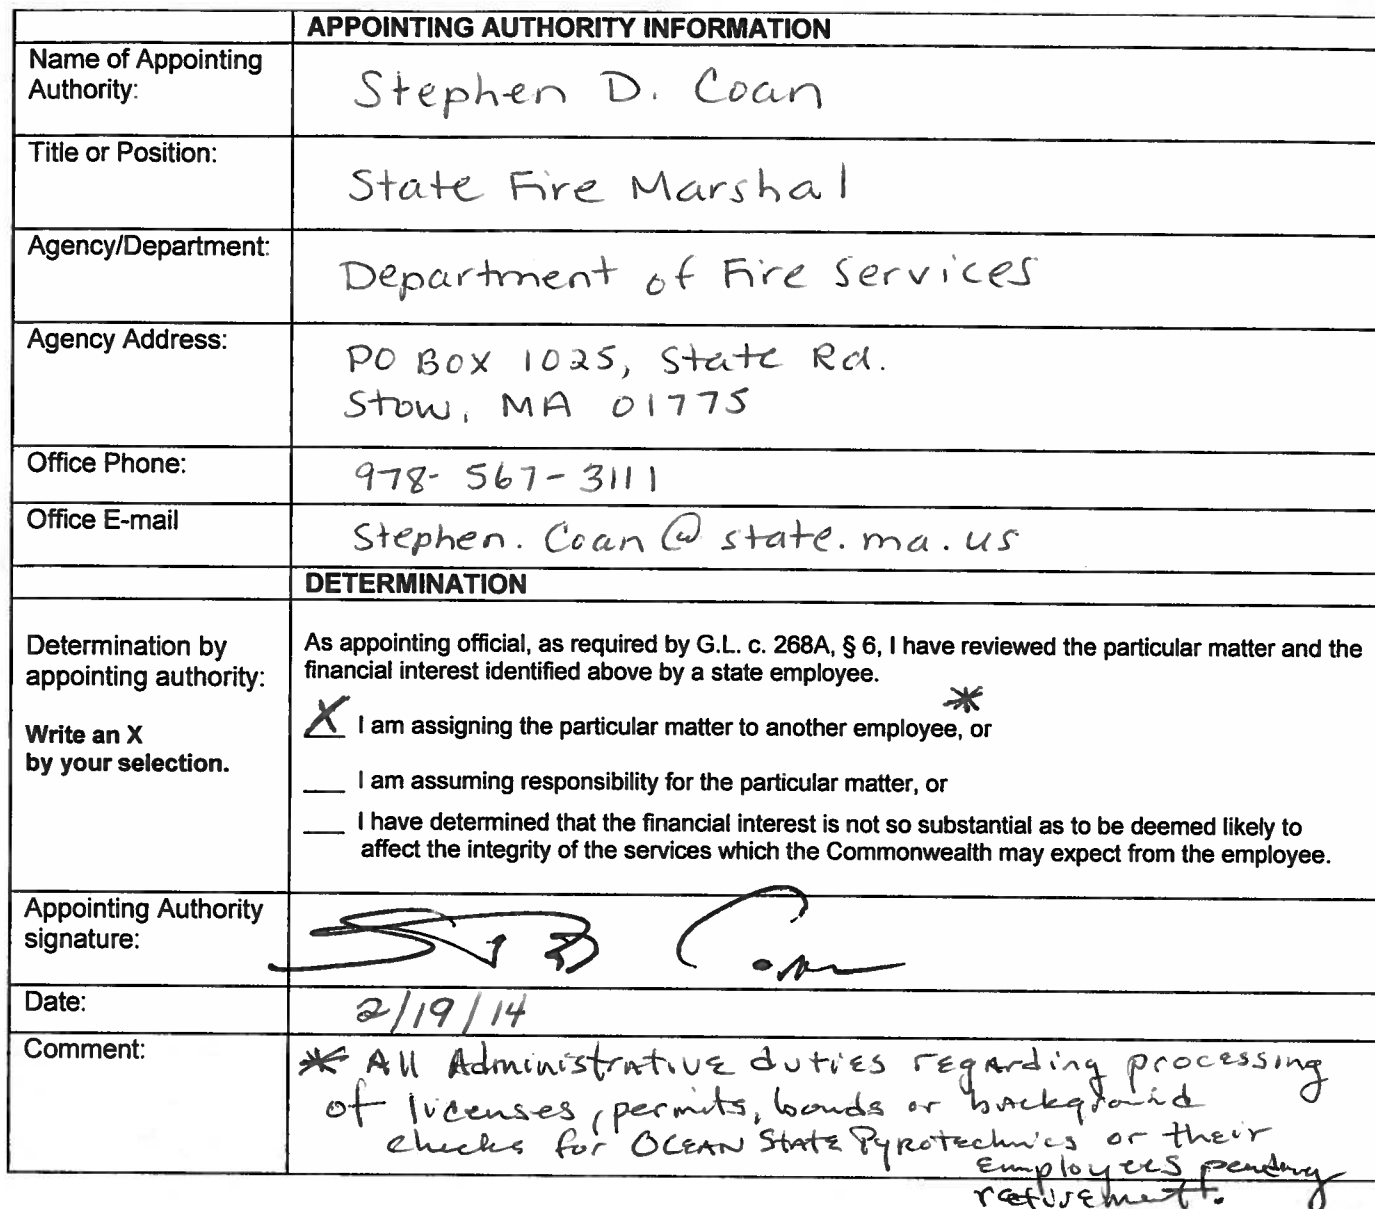 APPOINTING AUTHORITY INFORMATION
Name of Appointing Authority:
Stephen D. Coan
Title or Position:
State Fire Marshal
Agency/Department:
Department of Fire Services
Agency Address:
PO BOX 1025, State Rd.
Stow, MA 01775
Office Phone:
978-567-3111
Office E-mail
Stephen.Coan@state.ma.us
DETERMINATION
Determination by
appointing authority:
Write an X
by your selection.
As appointing official, as required by G.L. c. 268A, § 6, I have reviewed the particular matter and the
financial interest identified above by a state employee.
X I am assigning the particular matter to another employee,* or
___ I am assuming responsibility for the particular matter, or
___ I have determined that the financial interest is not so substantial as to be deemed likely to
affect the integrity of the services which the Commonwealth may expect from the employee.
Appointing Authority
signature:
Date:
2/19/14
Comment:
* All Administrative duties regarding processing
of licenses, permits, bonds or background
checks for OCEAN STATE Pyrotechnics or their
employees pending
retirement.